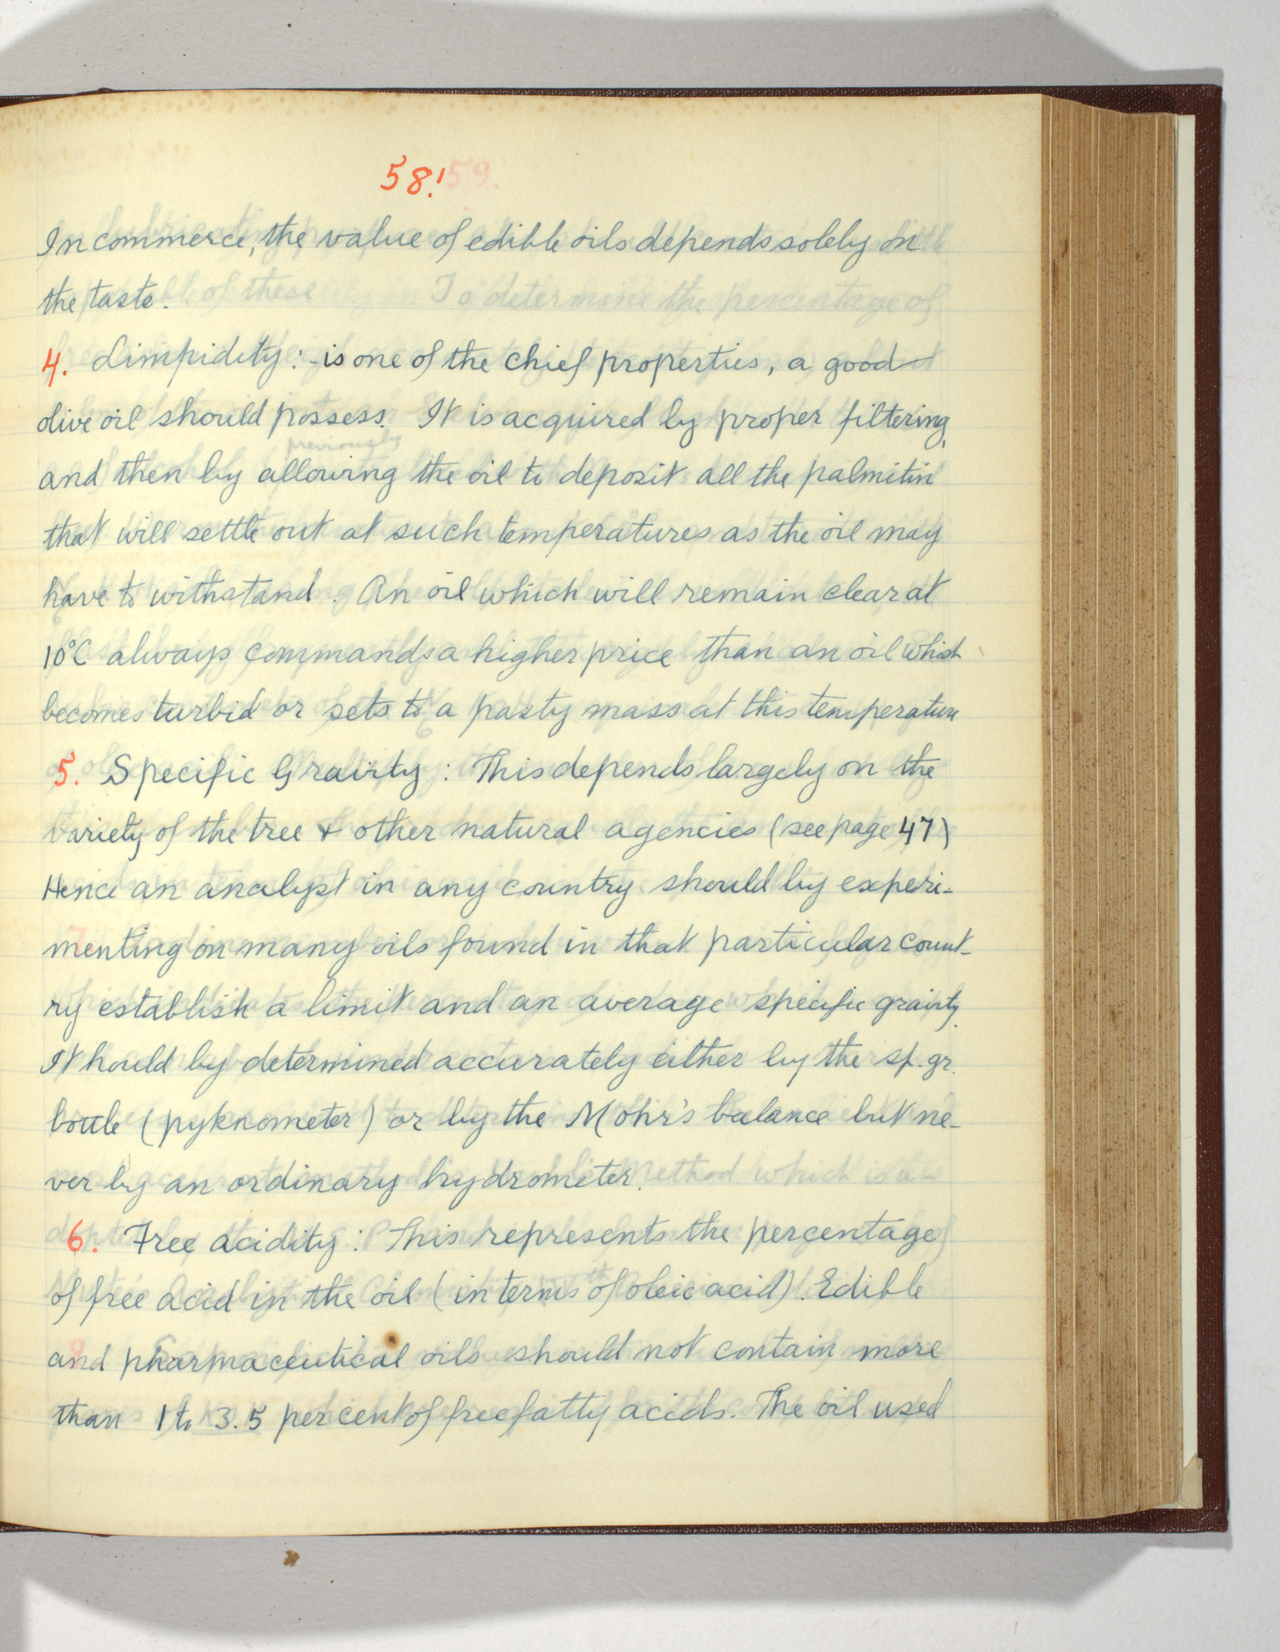 58!
In commerce, the value of edible oils depends solely on
the taste.
4. Limpidity: - is one of the chief properties, a good
olive oil should possess. It is acquired by proper filtering,
and then by allowing the oil to deposit all the palmitin
that will settle out at such temperatures as the oil may
have to withstand. An oil which will remain clear at
10°C always commands a higher price than an oil which
becomes turbid or sets to a pasty mass at this temperature
5. Specific Gravity: This depends largely on the
variety of the tree & other natural agencies (see page 47)
Hence an analyst in any country should by experi-
menting on many oils found in that particular count-
ry establish a limit and an average specific gravity.
It hould by determined accurately either by the sp. gr.
bottle (pyknometer) or by the Mohr's balance but ne-
ver by an ordinary hydrometer.
6. Free acidity: This represents the percentage
of free acid in the oil (in terms of oleic acid). Edible
and pharmaceutical oils should not contain more
than 1 to 3.5 per cent of free fatty acids. The oil used